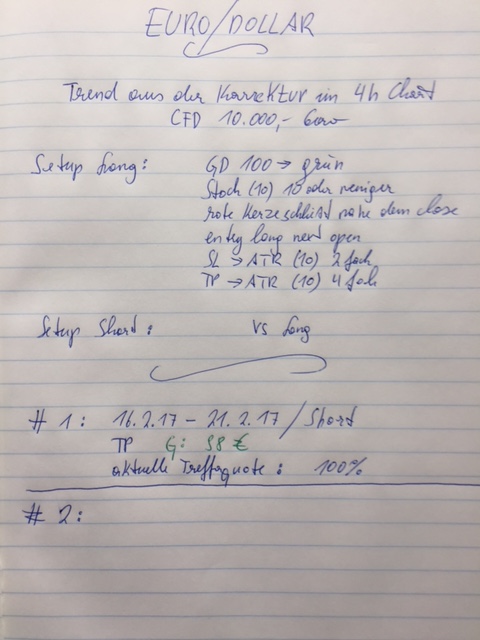 EURO/DOLLAR
Trend aus der Korrektur im 4h Chart
CFD 10.000,- Euro
Setup Long: GD 100 → grün
Stoch (10) 10 oder weniger
rote Kerze schließt nahe dem close
entry long next open
SL → ATR (10) 2 fach
TP → ATR (10) 4 fach
Setup Short: vs long
# 1: 16.2.17 - 21.2.17 / Short
TP G: 98 €
aktuelle Trefferquote: 100%
# 2: